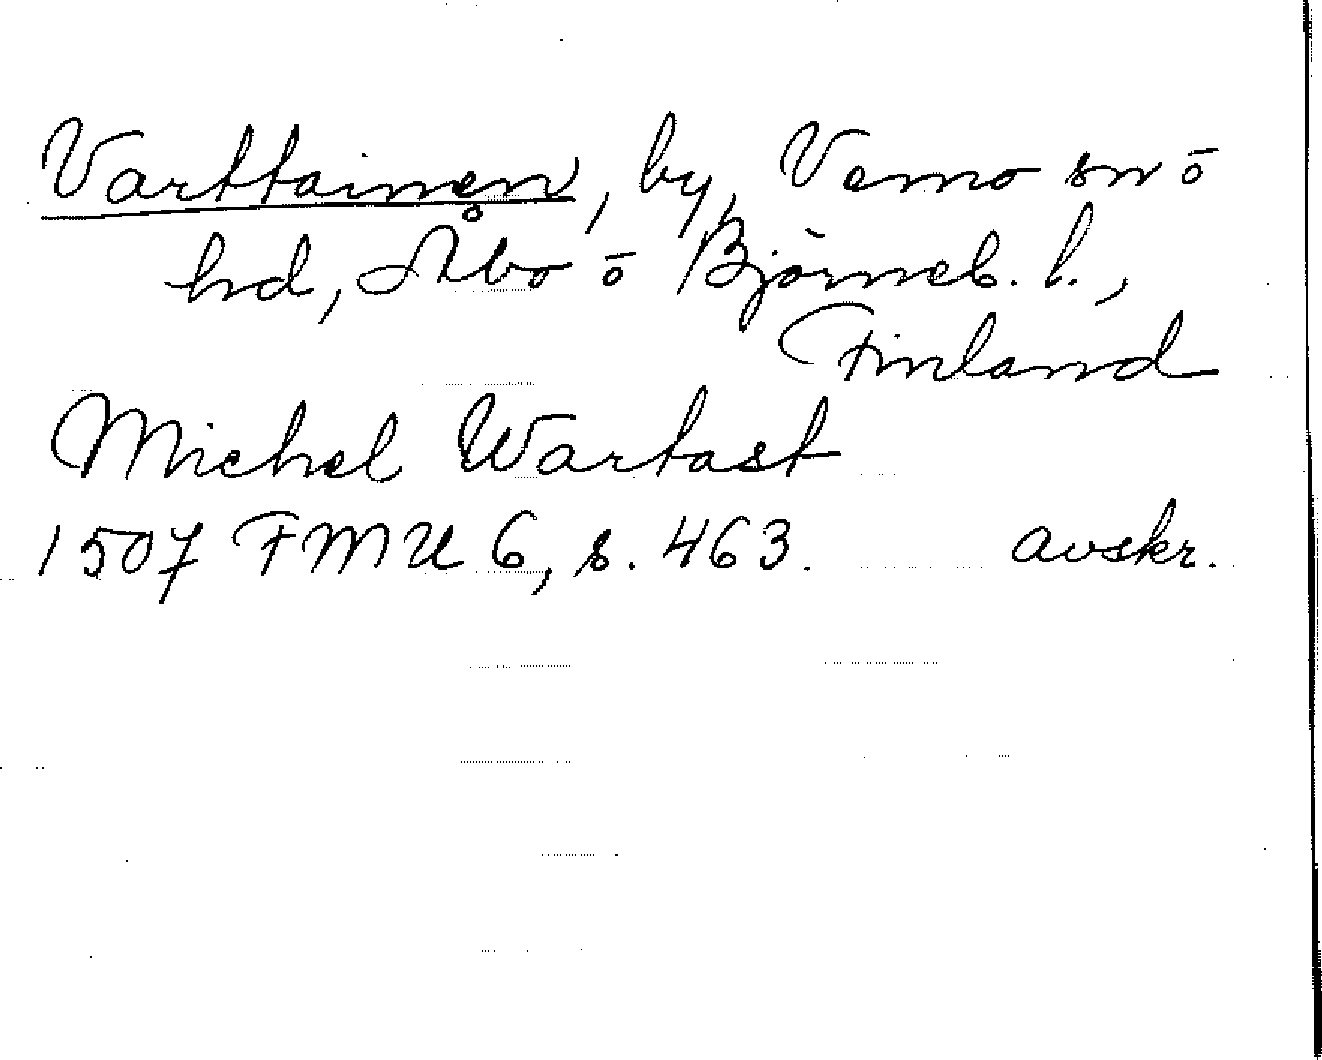 Varttainen, by, Vemo sn ō
hd, Åbo ō Björneb. l.,
Finland
Michel Wartast
1507 FMU 6, s. 463. avskr.